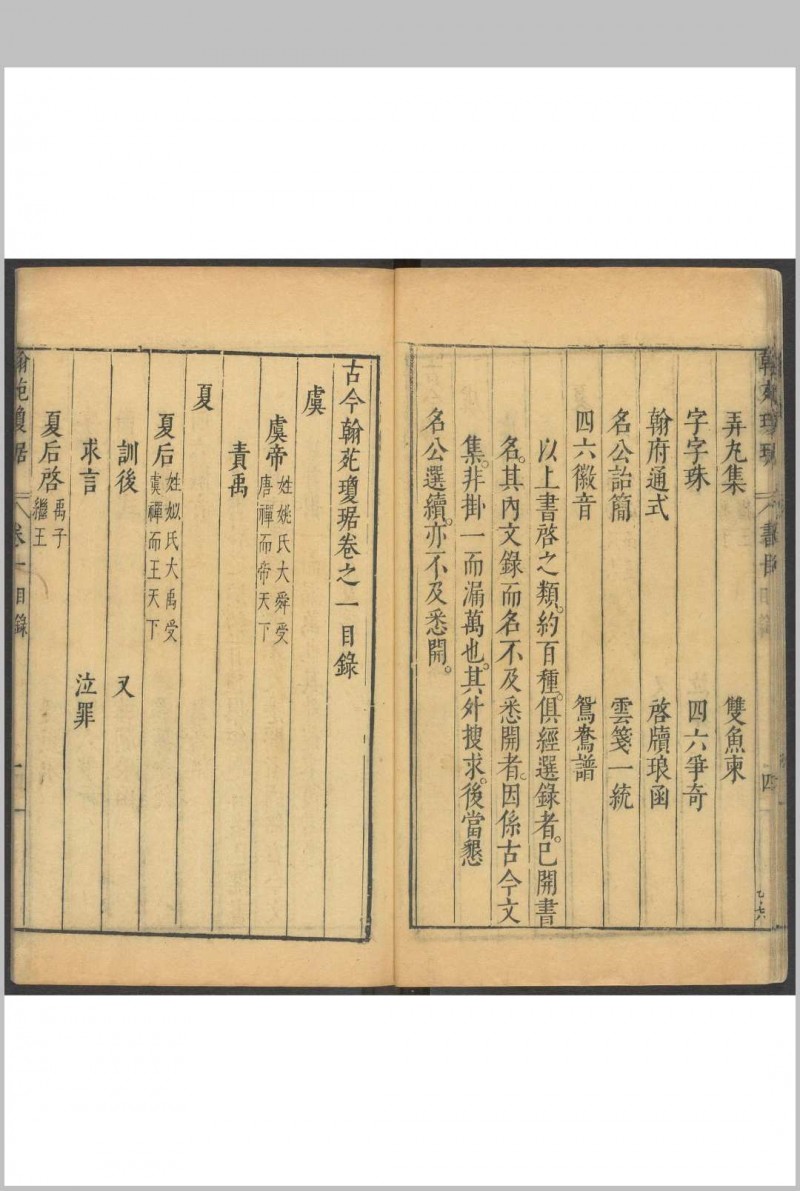 弄丸集　雙魚柬
字字珠　四六爭奇
翰府通式　啓牘琅函
名公詒簡　雲箋一統
四六徽音　鴛鴦譜
以上書啓之類。約百種。俱經選錄者。已開書
名。其內文錄而名不及悉開者。因係古今文
集。非掛一而漏萬也。其外搜求。後當懇
名公選續。亦不及悉開。
古今翰苑瓊琚卷之一目錄
虞
虞帝 姓姚氏大舜受
唐禪而帝天下
責禹
夏
夏后 姓姒氏大禹受
虞禪而王天下
訓後　又
求言　泣罪
夏后啓 禹子
繼王
翰苑瓊琚　卷一目錄　一